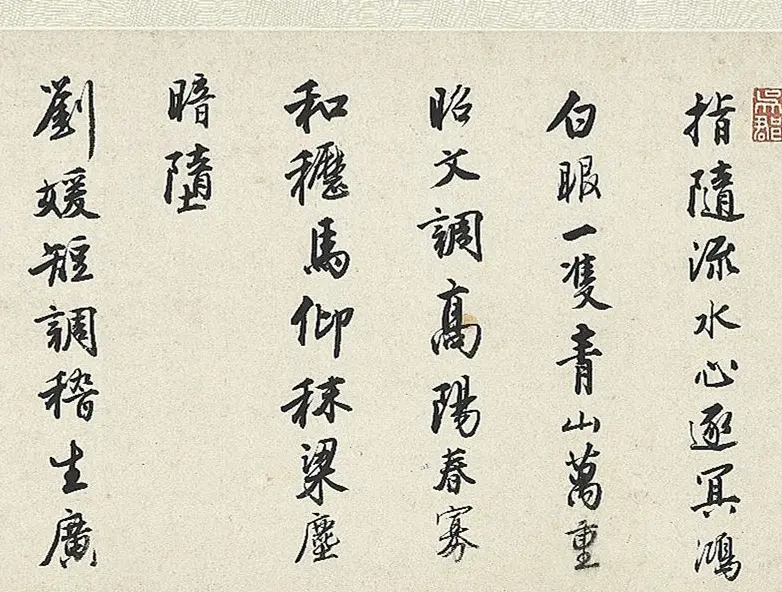 吳郡
指隨流水心逐冥鴻
白眼一隻青山萬重
昭文調高陽春寡
和櫪馬仰秣梁塵
暗墮
劉媛短調嵇生廣